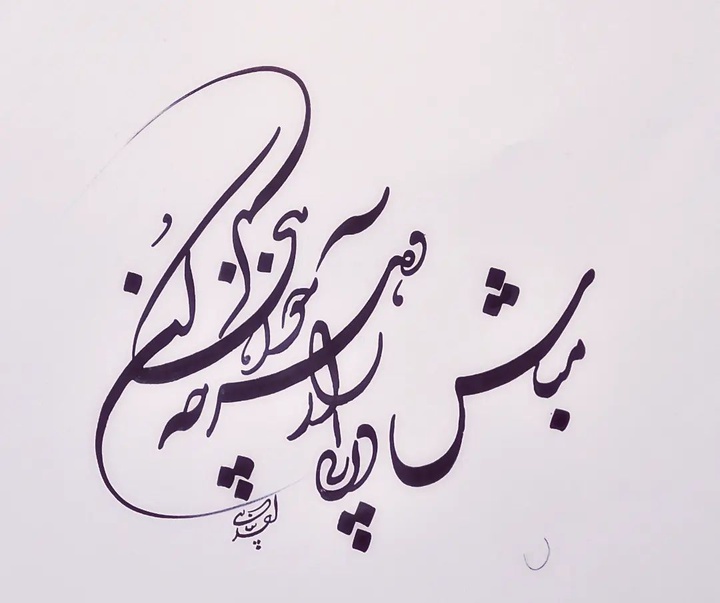 مباش در پی آزار و هر چه خواهی کن